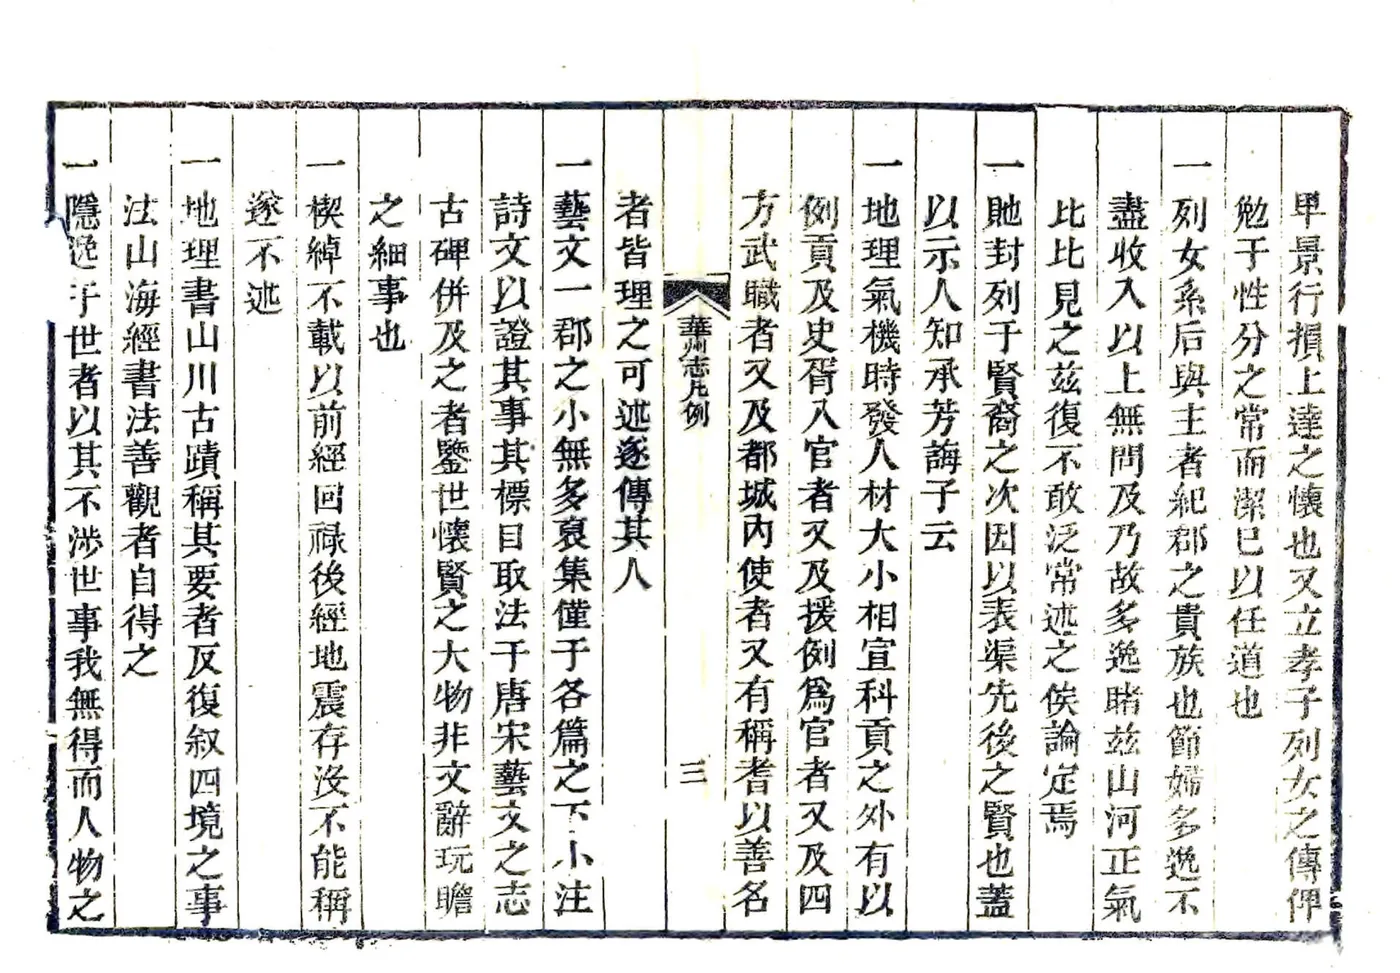 早景行損上達之懷也又立孝子列女之傳俾
勉于性分之常而潔已以任道也
一列女系后與主者紀郡之貴族也節婦多逸不
盡收入以上無問及乃故多逸睹茲山河正氣
比比見之茲復不敢泛常述之俟論定焉
一貤封列于賢裔之次因以表渠先後之賢也蓋
以示人知承芳誨子云
一地理氣機時發人材大小相宜科貢之外有以
例貢及史胥入官者又及援例爲官者又及四
方武職者又及都城內使者又有稱耆以善名
華州志凡例
三
者皆理之可述遂傳其人
一藝文一郡之小無多裒集僅于各篇之下小注
詩文以證其事其標目取法于唐宋藝文之志
古碑併及之者鑒世懷賢之大物非文辭玩瞻
之細事也
一楔綽不載以前經回祿後經地震存沒不能稱
遂不述
一地理書山川古蹟稱其要者反復叙四境之事
法山海經書法善觀者自得之
一隱逸于世者以其不涉世事我無得而人物之